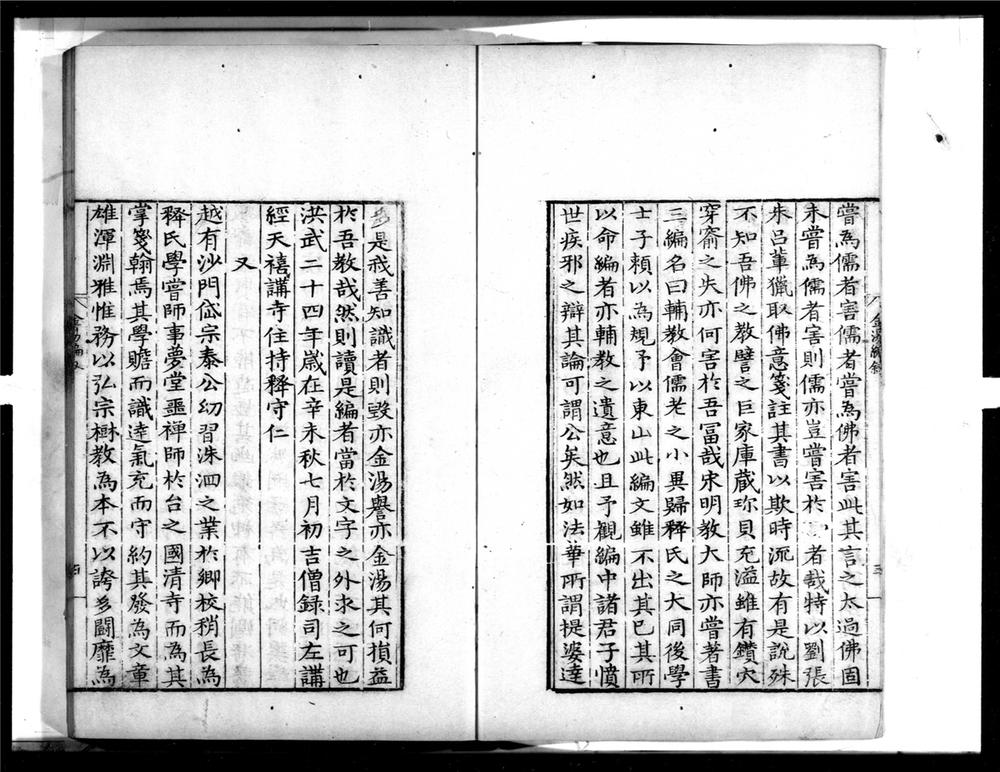 嘗為儒者害儒者嘗為佛者害此其言之太過佛固
未嘗為儒者害則儒亦豈嘗害於者哉特以劉張
朱呂輩獵取佛意箋註其書以欺時流故有是說殊
不知吾佛之教譬之巨家庫藏珎貝充溢雖有鑽穴
穿窬之失亦何害於吾冨哉宋明教大師亦嘗著書
三編名曰輔教會儒老之小異歸釋氏之大同後學
士子頼以為規予以東山此編文雖不出其已其所
以命編者亦輔教之遺意也且予觀編中諸君子憤
世疾邪之辯其論可謂公矣然如法華所謂提婆達
金湯編敘
三
多是我善知識者則毀亦金湯譽亦金湯其何損益
於吾教哉然則讀是編者當於文字之外求之可也
洪武二十四年歲在辛未秋七月初吉僧録司左講
經天禧講寺住持釋守仁
又
越有沙門岱宗泰公幼習洙泗之業於鄉校稍長為
釋氏學嘗師事夢堂噩禪師於台之國清寺而為其
掌箋翰焉其學贍而識達氣充而守約其發為文章
雄渾淵雅惟務以弘宗樹教為本不以誇多鬪靡為